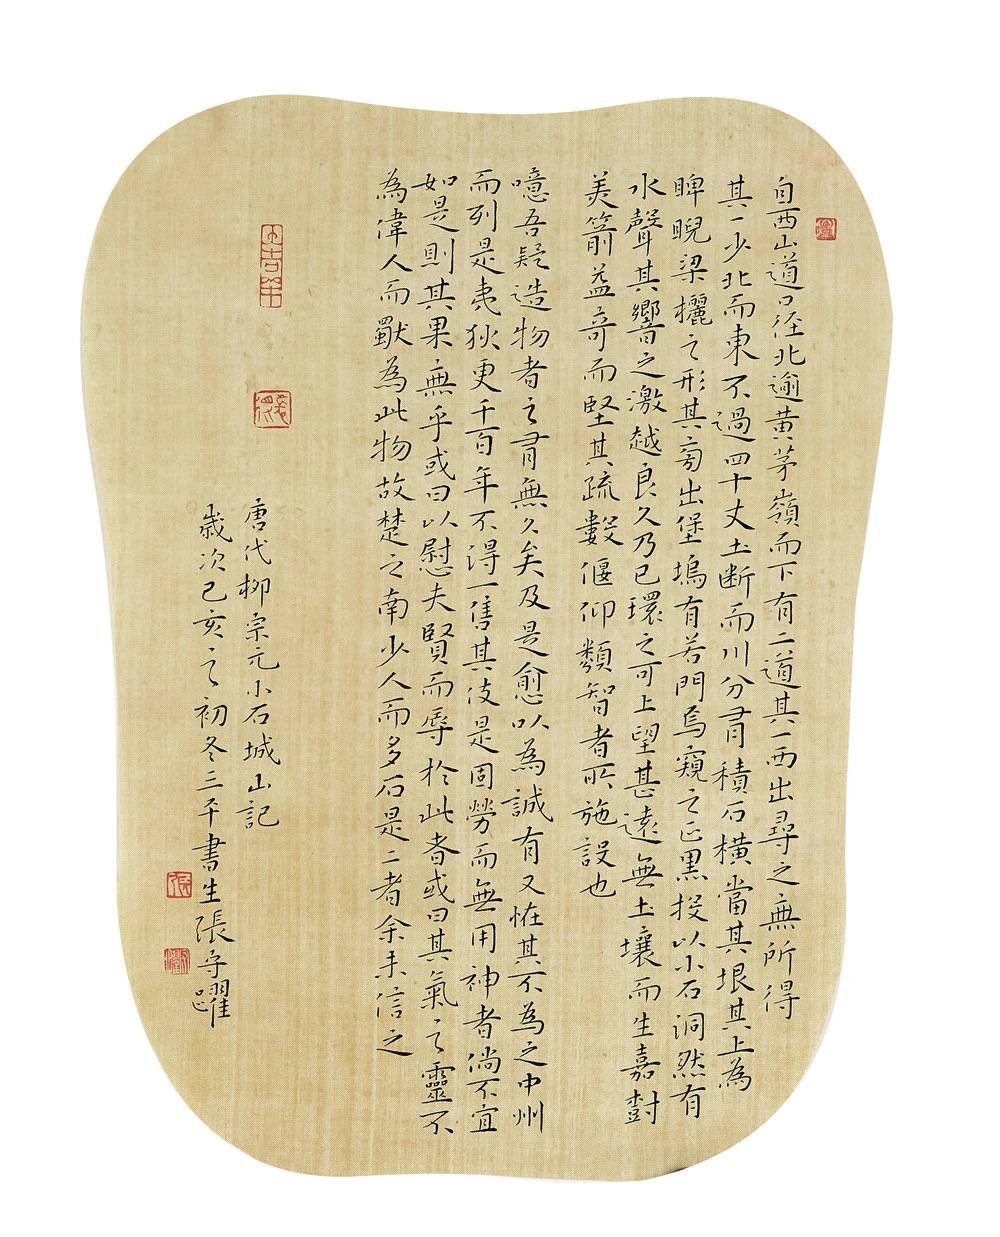 自西山道口徑北逾黃茅嶺而下有二道其一西出尋之無所得
其一少北而東不過四十丈土斷而川分有積石橫當其垠其上為
睥睨梁欐之形其旁出堡塢有若門焉窺之正黑投以小石洞然有
水聲其響之激越良久乃已環之可上望甚遠無土壤而生嘉樹
美箭益奇而堅其疏數偃仰類智者所施設也
噫吾疑造物者之有無久矣及是愈以為誠有又恠其不為之中州
而列是夷狄更千百年不得一售其伎是固勞而無用神者倘不宜
如是則其果無乎或曰以慰夫賢而辱於此者或曰其氣之靈不
為偉人而獨為此物故楚之南少人而多石是二者余未信之
大吉羊
唐代柳宗元小石城山記
歲次己亥之初冬三平書生張守躍
張